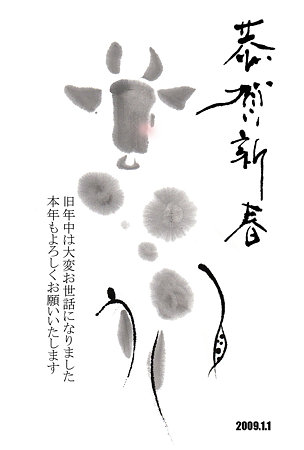 恭賀新春
旧年中は大変お世話になりました
本年もよろしくお願いいたします
2009.1.1